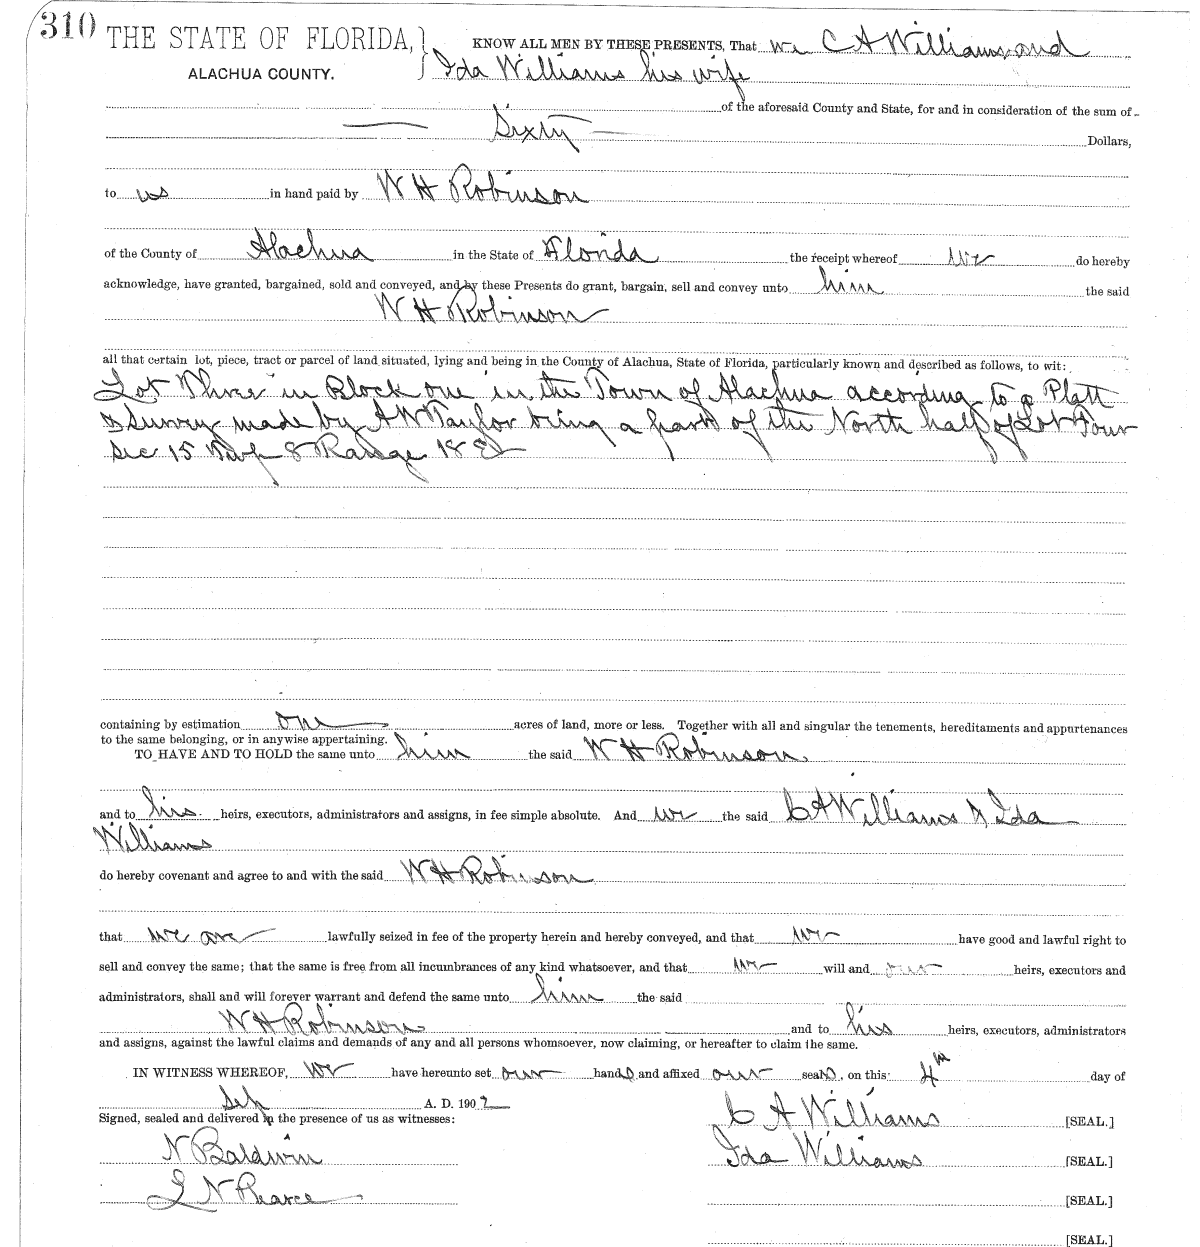 310
THE STATE OF FLORIDA, } KNOW ALL MEN BY THESE PRESENTS, That we C A Williams and
ALACHUA COUNTY. } Ida Williams his wife
of the aforesaid County and State, for and in consideration of the sum of
Sixty Dollars,
to us in hand paid by W H Robinson
of the County of Alachua in the State of Florida the receipt whereof we do hereby
acknowledge, have granted, bargained, sold and conveyed, and by these Presents do grant, bargain, sell and convey unto him the said
W H Robinson
all that certain lot, piece, tract or parcel of land situated, lying and being in the County of Alachua, State of Florida, particularly known and described as follows, to wit:
Lot Three in Block one in the Town of Alachua according to a Platt
& Survey made by Taylor being a part of the North half of Lot Four
Sec 15 Twp 8 Range 18 E
containing by estimation one acres of land, more or less. Together with all and singular the tenements, hereditaments and appurtenances
to the same belonging, or in anywise appertaining.
TO HAVE AND TO HOLD the same unto him the said W H Robinson
and to his heirs, executors, administrators and assigns, in fee simple absolute. And we the said C A Williams & Ida
Williams
do hereby covenant and agree to and with the said W H Robinson
that we are lawfully seized in fee of the property herein and hereby conveyed, and that we have good and lawful right to
sell and convey the same; that the same is free from all incumbrances of any kind whatsoever, and that we will and our heirs, executors and
administrators, shall and will forever warrant and defend the same unto him the said
W H Robinson and to his heirs, executors, administrators
and assigns, against the lawful claims and demands of any and all persons whomsoever, now claiming, or hereafter to claim the same.
IN WITNESS WHEREOF, we have hereunto set our hands and affixed our seals, on this 4th day of
Sep A. D. 1902
Signed, sealed and delivered in the presence of us as witnesses: C A Williams [SEAL.]
N Baldwin Ida Williams [SEAL.]
N Pearce [SEAL.]
[SEAL.]